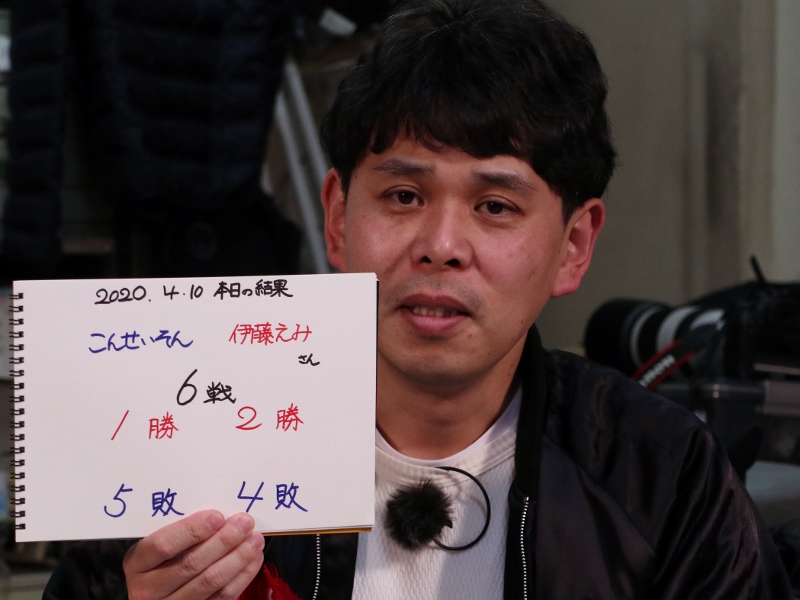 2020.4.10 本日の結果
こんせいそん 伊藤えみ
さん
6戦
1勝 2勝
5敗 4敗